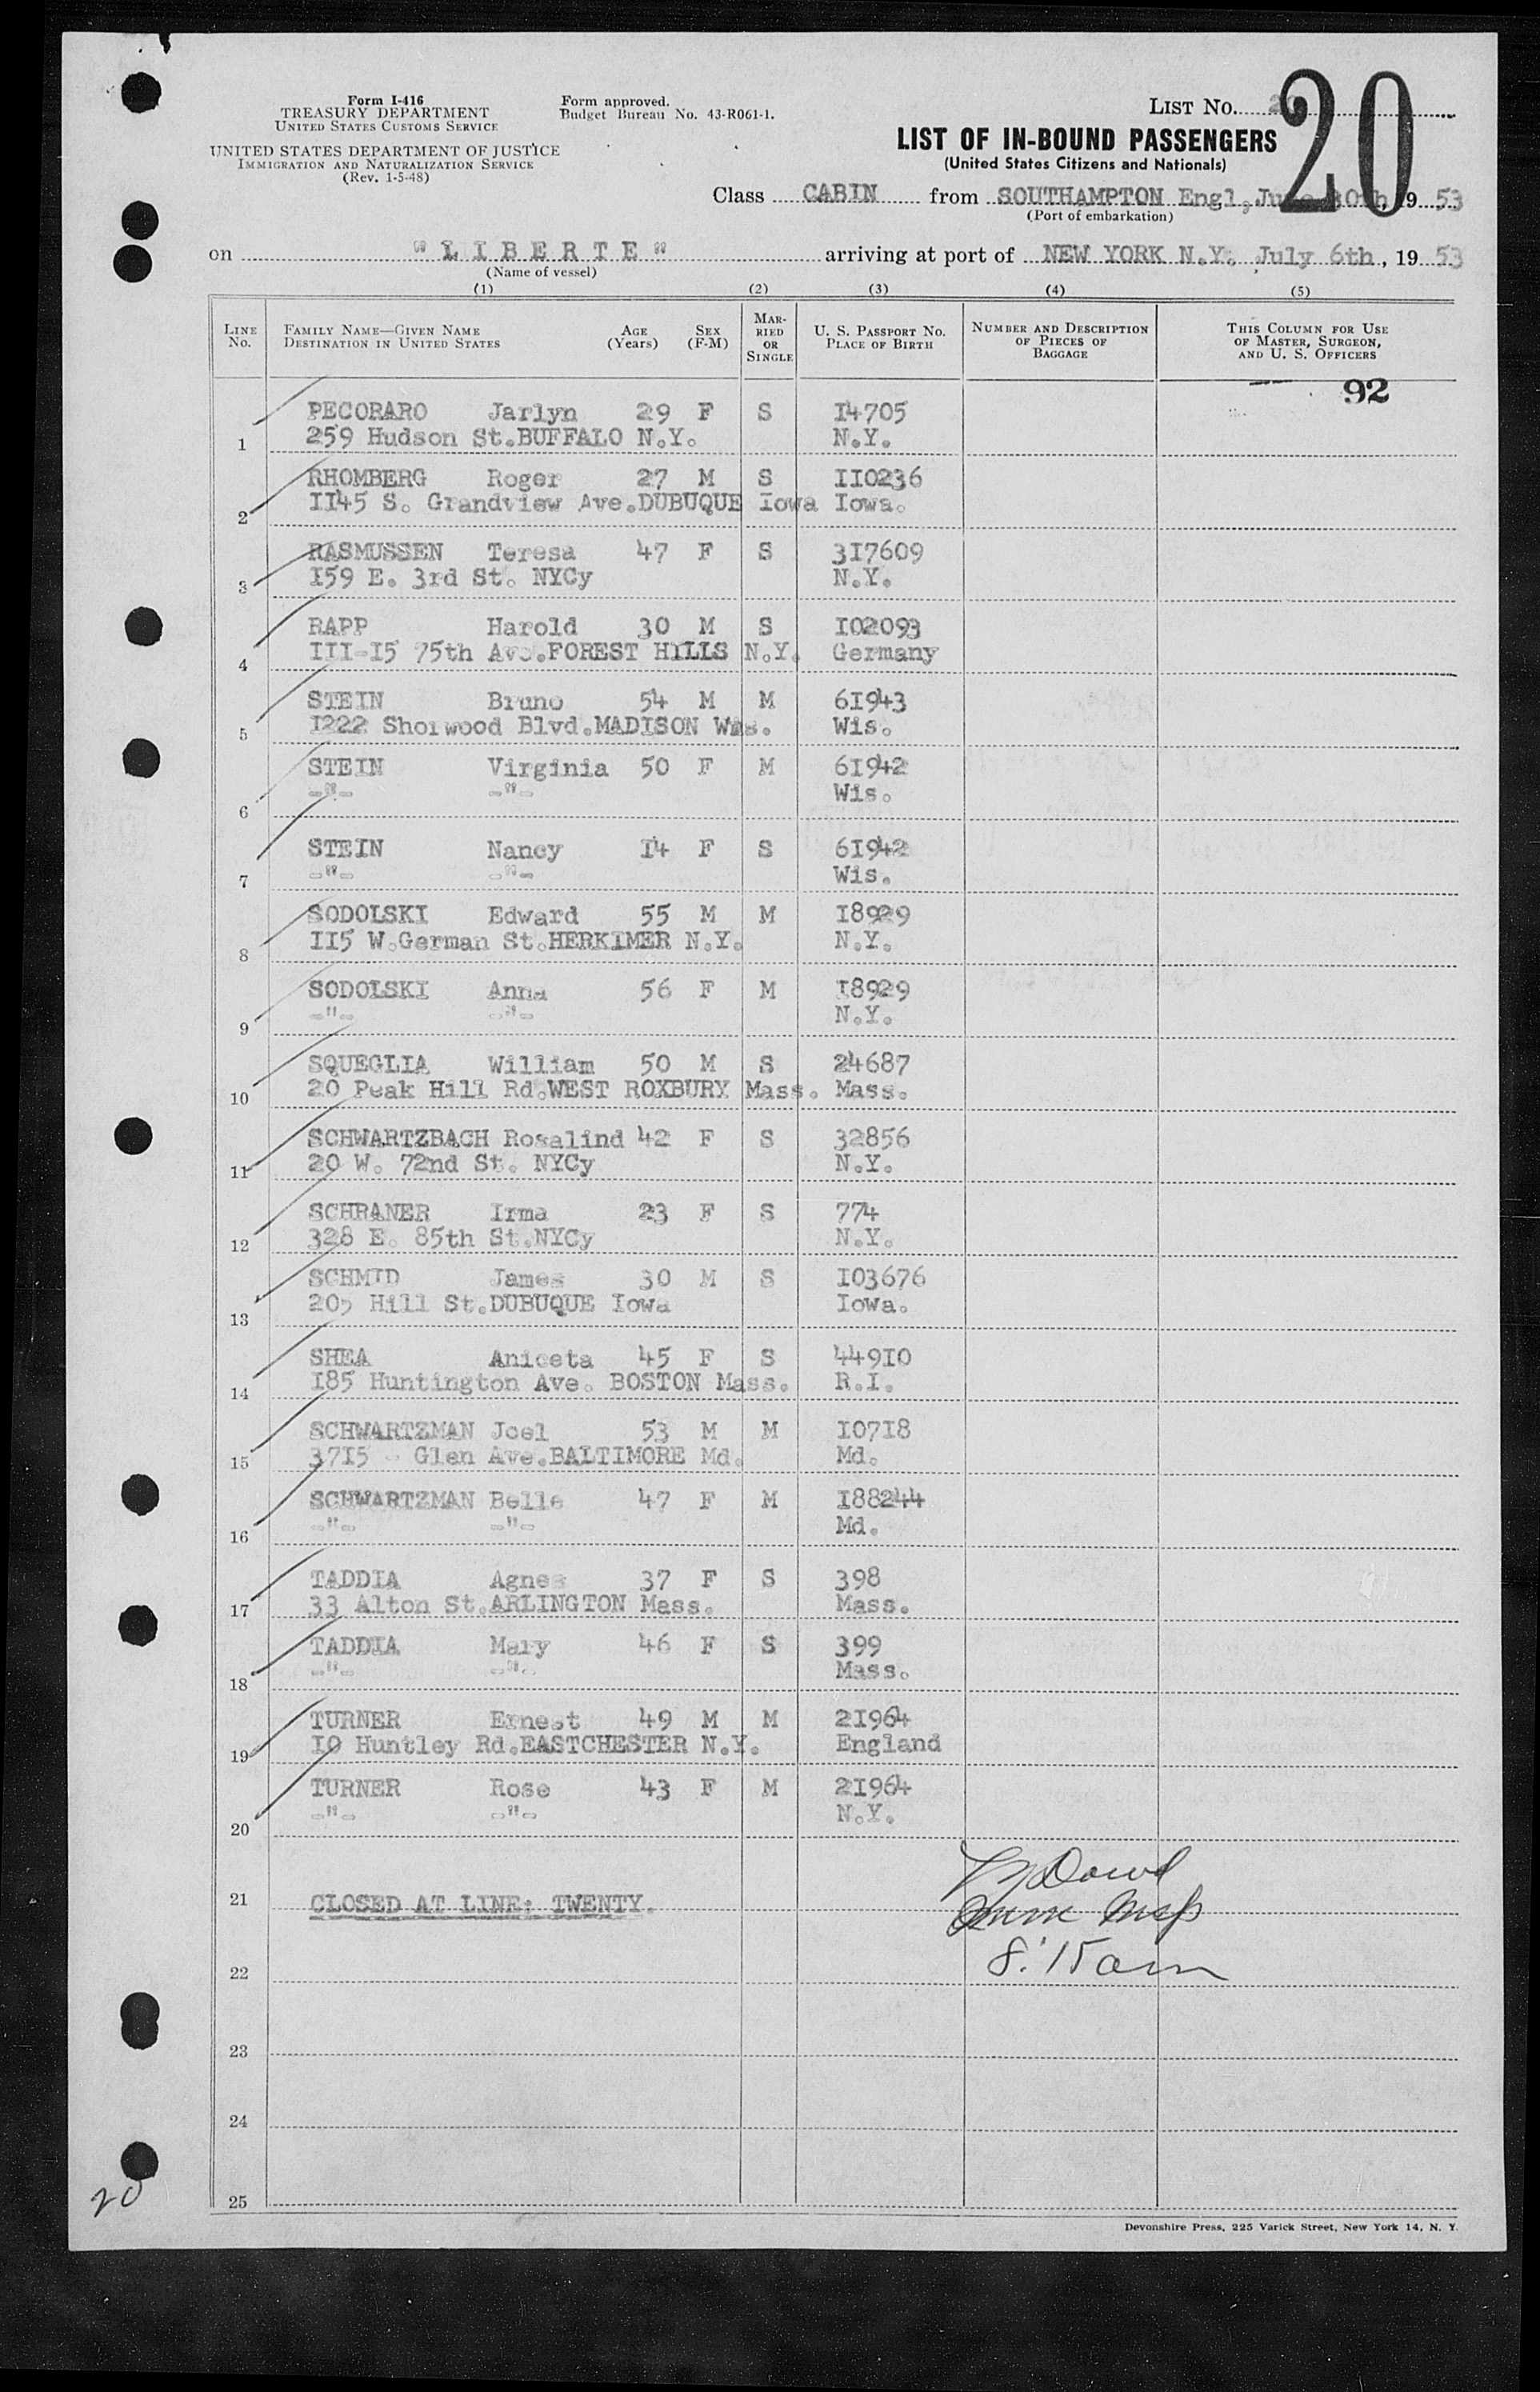 Form I-416
TREASURY DEPARTMENT
UNITED STATES CUSTOMS SERVICE
UNITED STATES DEPARTMENT OF JUSTICE
IMMIGRATION AND NATURALIZATION SERVICE
(Rev. 1-5-48)
Form approved.
Budget Bureau No. 43-R061-1.
LIST No.
20
LIST OF IN-BOUND PASSENGERS
(United States Citizens and Nationals)
Class CABIN from SOUTHAMPTON Engl, June 30th, 19 53
(Port of embarkation)
on "L I B E R T E" arriving at port of NEW YORK N.Y. July 6th, 19 53
(Name of vessel)
(1) (2) (3) (4) (5)
LINE No. FAMILY NAME—GIVEN NAME DESTINATION IN UNITED STATES AGE (Years) SEX (F-M) MARRIED OR SINGLE U. S. PASSPORT NO. PLACE OF BIRTH NUMBER AND DESCRIPTION OF PIECES OF BAGGAGE THIS COLUMN FOR USE OF MASTER, SURGEON, AND U. S. OFFICERS
92
PECORARO Jarlyn 29 F S I4705
1 259 Hudson St.BUFFALO N.Y. N.Y.
RHOMBERG Roger 27 M S II0236
2 II45 S. Grandview Ave.DUBUQUE Iowa Iowa.
RASMUSSEN Teresa 47 F S 3I7609
3 I59 E. 3rd St. NYCy N.Y.
RAPP Harold 30 M S I02093
4 III-I5 75th Ave.FOREST HILLS N.Y. Germany
STEIN Bruno 54 M M 6I943
5 I222 Sherwood Blvd.MADISON Wis. Wis.
STEIN Virginia 50 F M 6I942
6 -"- -"- Wis.
STEIN Nancy I4 F S 6I942
7 -"- -"- Wis.
SODOLSKI Edward 55 M M I8929
8 II5 W.German St.HERKIMER N.Y. N.Y.
SODOLSKI Anna 56 F M I8929
9 -"- -"- N.Y.
SQUEGLIA William 50 M S 24687
10 20 Peak Hill Rd.WEST ROXBURY Mass. Mass.
SCHWARTZBACH Rosalind 42 F S 32856
11 20 W. 72nd St. NYCy N.Y.
SCHRANER Irma 23 F S 774
12 328 E. 85th St.NYCy N.Y.
SCHMID James 30 M S I03676
13 205 Hill St.DUBUQUE Iowa Iowa.
SHEA Aniceta 45 F S 449I0
14 I85 Huntington Ave. BOSTON Mass. R.I.
SCHWARTZMAN Joel 53 M M I07I8
15 37I5 - Glen Ave.BALTIMORE Md. Md.
SCHWARTZMAN Belle 47 F M I88244
16 -"- -"- Md.
TADDIA Agnes 37 F S 398
17 33 Alton St.ARLINGTON Mass. Mass.
TADDIA Mary 46 F S 399
18 -"- -"- Mass.
TURNER Ernest 49 M M 2I964
19 I0 Huntley Rd.EASTCHESTER N.Y. England
TURNER Rose 43 F M 2I964
20 -"- -"- N.Y.
21 CLOSED AT LINE: TWENTY.
Dowd
Insp
22 8:15 am
23
24
25
20
Devonshire Press, 225 Varick Street, New York 14, N. Y.